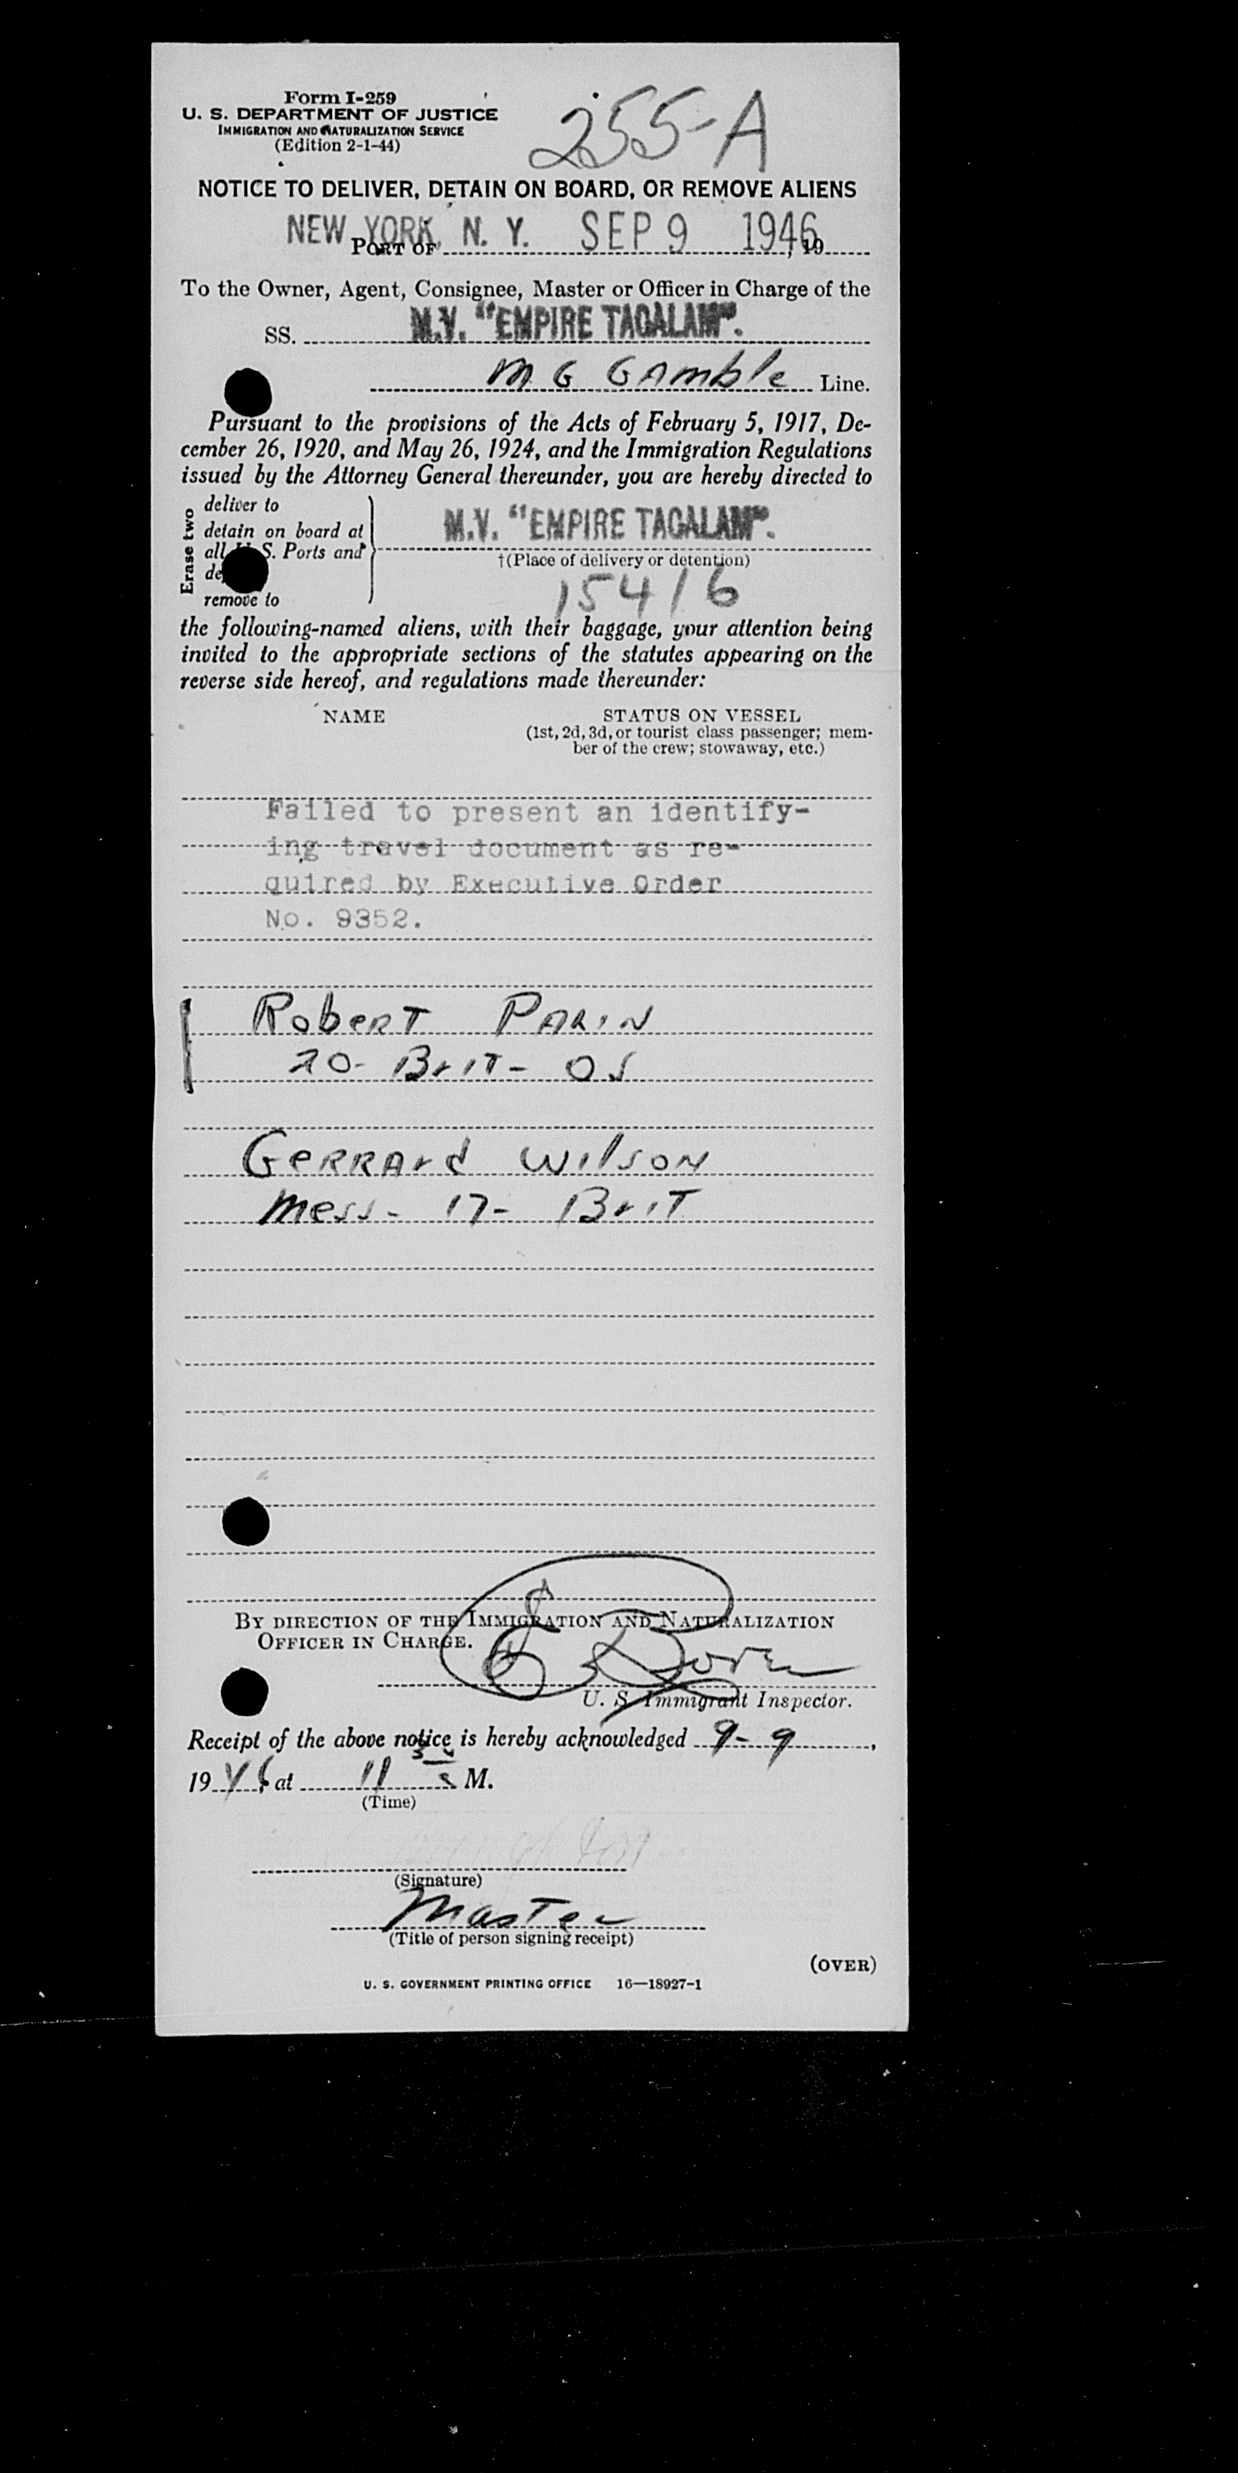 Form I-259
U. S. DEPARTMENT OF JUSTICE
IMMIGRATION AND NATURALIZATION SERVICE
(Edition 2-1-44)
255-A
NOTICE TO DELIVER, DETAIN ON BOARD, OR REMOVE ALIENS
NEW YORK, N. Y. SEP 9 1946
PORT OF , 19
To the Owner, Agent, Consignee, Master or Officer in Charge of the
SS. M.V. "EMPIRE TAGALAM".
M G Gamble Line.
Pursuant to the provisions of the Acts of February 5, 1917, De-
cember 26, 1920, and May 26, 1924, and the Immigration Regulations
issued by the Attorney General thereunder, you are hereby directed to
Erase two
deliver to
detain on board at
all U. S. Ports and
remove to
M.V. "EMPIRE TAGALAM".
†(Place of delivery or detention)
15416
the following-named aliens, with their baggage, your attention being
invited to the appropriate sections of the statutes appearing on the
reverse side hereof, and regulations made thereunder:
NAME STATUS ON VESSEL
(1st, 2d, 3d, or tourist class passenger; mem-
ber of the crew; stowaway, etc.)
Failed to present an identify-
ing travel document as re-
quired by Executive Order
No. 9352.
Robert Parin
20- Brit- OS
Gerrard Wilson
Mess- 17- Brit
BY DIRECTION OF THE IMMIGRATION AND NATURALIZATION
OFFICER IN CHARGE.
U. S. Immigrant Inspector.
Receipt of the above notice is hereby acknowledged 9-9,
1946, at 11 M.
(Time)
(Signature)
Master
(Title of person signing receipt)
(OVER)
U. S. GOVERNMENT PRINTING OFFICE 16—18927-1